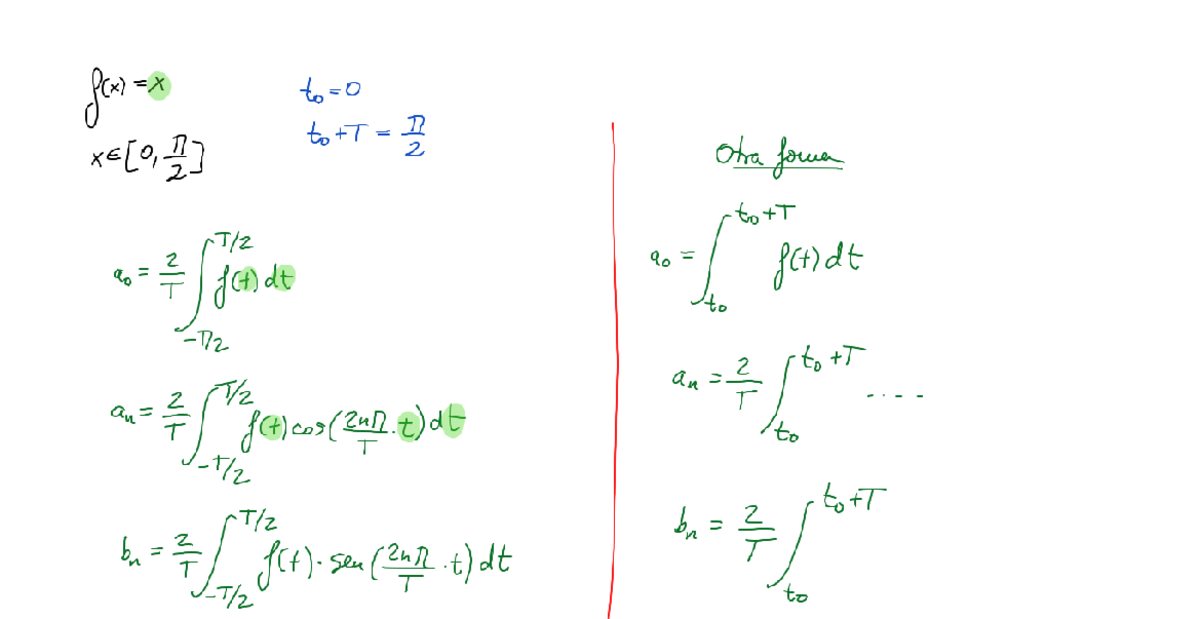 f(x) = x
x ∈ [0, π/2]
t₀ = 0
t₀ + T = π/2
a₀ = 2/T ∫_{-T/2}^{T/2} f(t) dt
aₙ = 2/T ∫_{-T/2}^{T/2} f(t) cos(2nπ/T · t) dt
bₙ = 2/T ∫_{-T/2}^{T/2} f(t) · sen(2nπ/T · t) dt
Otra forma
a₀ = ∫_{t₀}^{t₀+T} f(t) dt
aₙ = 2/T ∫_{t₀}^{t₀+T} ....
bₙ = 2/T ∫_{t₀}^{t₀+T}